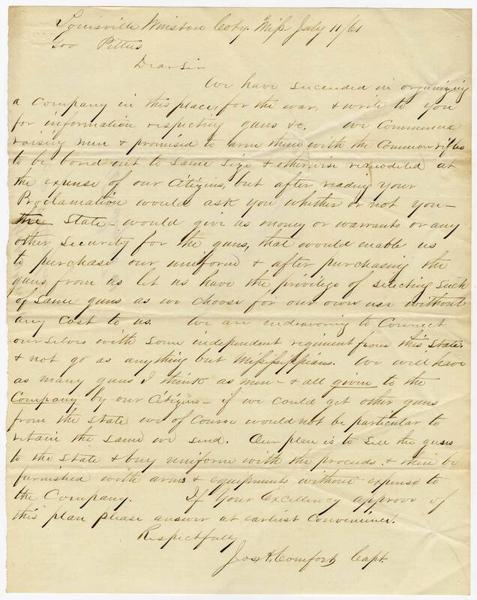 Louisville Winston Coty Miss July 11/61
Gov Pettus
Dear Sir
We have succeeded in organising
a Company in this place, for the war, & write to you
for information respecting guns &c. We commenced
raising men & promised to arm them with the Common rifles
to be bored out to same size & otherwise remodeled at
the expense of our Citizens, but after reading your
Proclamation would ask you whether or not you
the State would give us money or warrants or any
other security for the guns, that would enable us
to purchase our uniform & after purchasing the
guns from us let us have the privilege of selecting such
of same guns as we choose for our own use without
any cost to us. We are endeavoring to connect
ourselves with some independent regiment from this State
& not go as anything but Mississippians. We will have
as many guns I think as men & all given to the
Company by our Citizens — if we could get other guns
from the State we of course would not be particular to
retain the same we send. Our plan is to sell the guns
to the State & buy uniform with the proceeds & then be
furnished with arms & equipments without expense to
the Company. If your Excellency approve of
this plan please answer at earliest convenience.
Respectfully
Jos H. Comfort Capt.